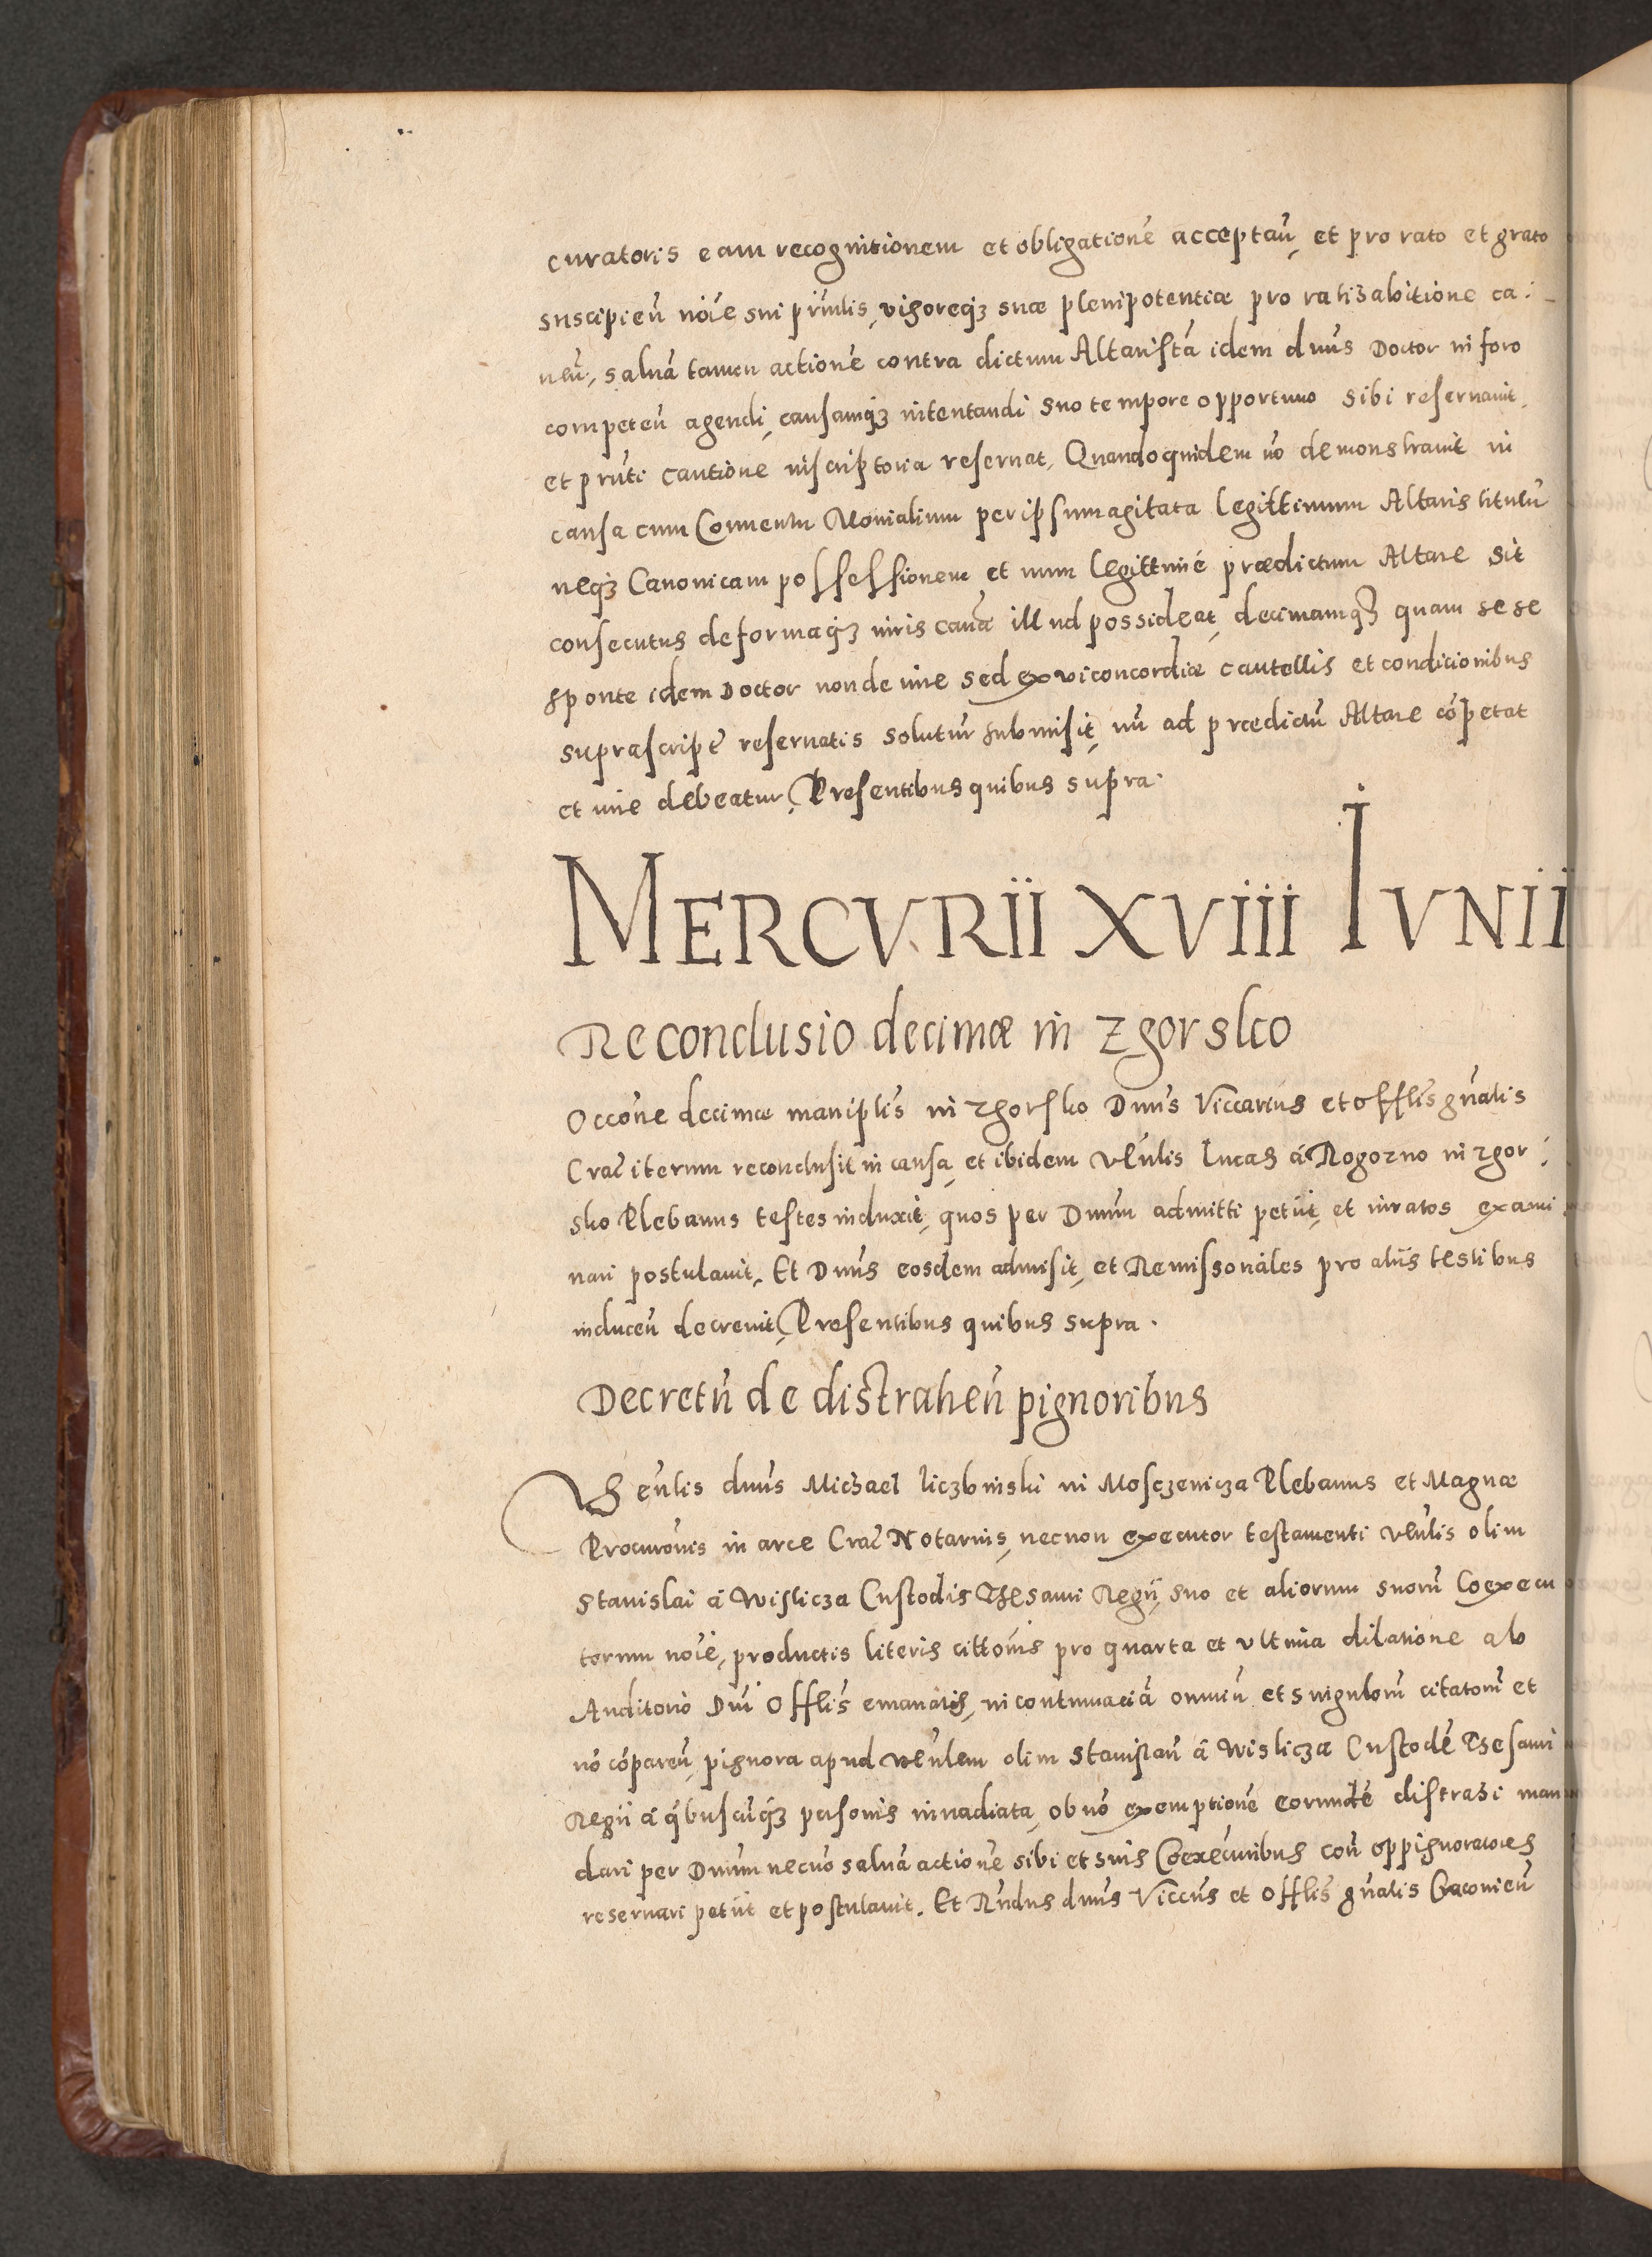 curatoris eam recognitionem et obligationē acceptań, et pro rato et grato
suscipień nōie sui prīnlis, vigoreqȝ suæ plenipotentiæ pro ratihabitione ca:
neń, saluā tamen actionē contra dictum Altaristā idem dnūs Doctor in foro
competeń agendi, causamqȝ intentandi suo tempore opportuno sibi reseruauit,
et prūti cautione inscriptoria reseruat, Quandoquidem nō demonstrauit in
causa cum Conuentu Monialium per ipsum agitata legittimum Altaris titulū
neqȝ Canonicam possessionem et num legittimé prædictum Altare sit
consecutus de formaqȝ iuris canā illud possideat, decimamqȝ quam sese
sponte idem Doctor non de iure sed ex vi concordiæ cautellis et condicionibus
suprascript̃ reseruatis soluturū submisit, nū ad prædictū Altare cōpetat
et iure debeatur, Presentibus quibus supra.
MERCVRII XVIII IVNII
Reconclusio decimæ in Zgorsko
Occōne decimæ maniplīs in Zgorsko Dnūs Viccarius et Offlīs gnālis
Crac̄ iterum reconclusit in causa, et ibidem vēnlis Lucas á Rogozno in Zgor:
sko Plebanus testes induxit, quos per Dnūm admitti petiit, et iuratos exami
nari postulauit, Et Dnūs eosdem admisit, et Remissonāles pro aliis testibus
induceń decreuit, Presentibus quibus supra.
Decretū de distraheń pignoribus
Vēnlis dnūs Michael Liczbinski in Mosczenicza Plebanus et Magnæ
Procurōnis in arce Crac̄ Notarius, necnon executor testamenti vēnlis olim
Stanislai á Wislicza Custodis Thesauri Regii, suo et aliorum suorū Coexecu
torum nōie, productis literis cittōnis pro quarta et vltima dilatione ab
Auditorio Dnī Offlīs emanatis, in contumaciā omniū et singulorū citatorū et
nō cōpareń, pignora apud vēnlem olim Stanislaū á Wislicza Custodē Thesauri
Regii á qbuscūqȝ personis inuadiata, ob nō exemptionē eorundē distrahi man
dari per Dnūm necnō saluā actionē sibi et suis Coexecutribus con̄ oppignoratores
reseruari petiit et postulauit. Et Rn̄dus dnūs Viccūs et Offlīs gnālis Cracouień